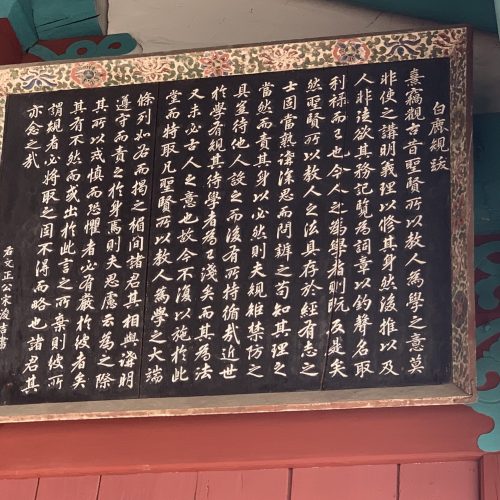 白鹿規跋
熹竊觀古昔聖賢所以教人爲學之意莫
非使之講明義理以修其身然後推以及
人非徒欲其務記覽爲詞章以釣聲名取
利祿而已也今人之爲學者則旣反是矣
然聖賢所以教人之法具存於經有志之
士固當熟讀深思而問辨之苟知其理之
當然而責其身以必然則夫規矩禁防之
具豈待他人設之而後有所持循哉近世
於學有規其待學者爲已淺矣而其爲法
又未必古人之意也故今不復以施於此
堂而特取凡聖賢所以教人爲學之大端
條列如右而揭之楣間諸君其相與講明
遵守而責之於身焉則夫思慮云爲之際
其所以戒慎而恐懼者必有嚴於彼者矣
其有不然而或出於此言之所棄則彼所
謂規者必將取之固不得而略也諸君其
亦念之哉
右文正公宋浚吉書